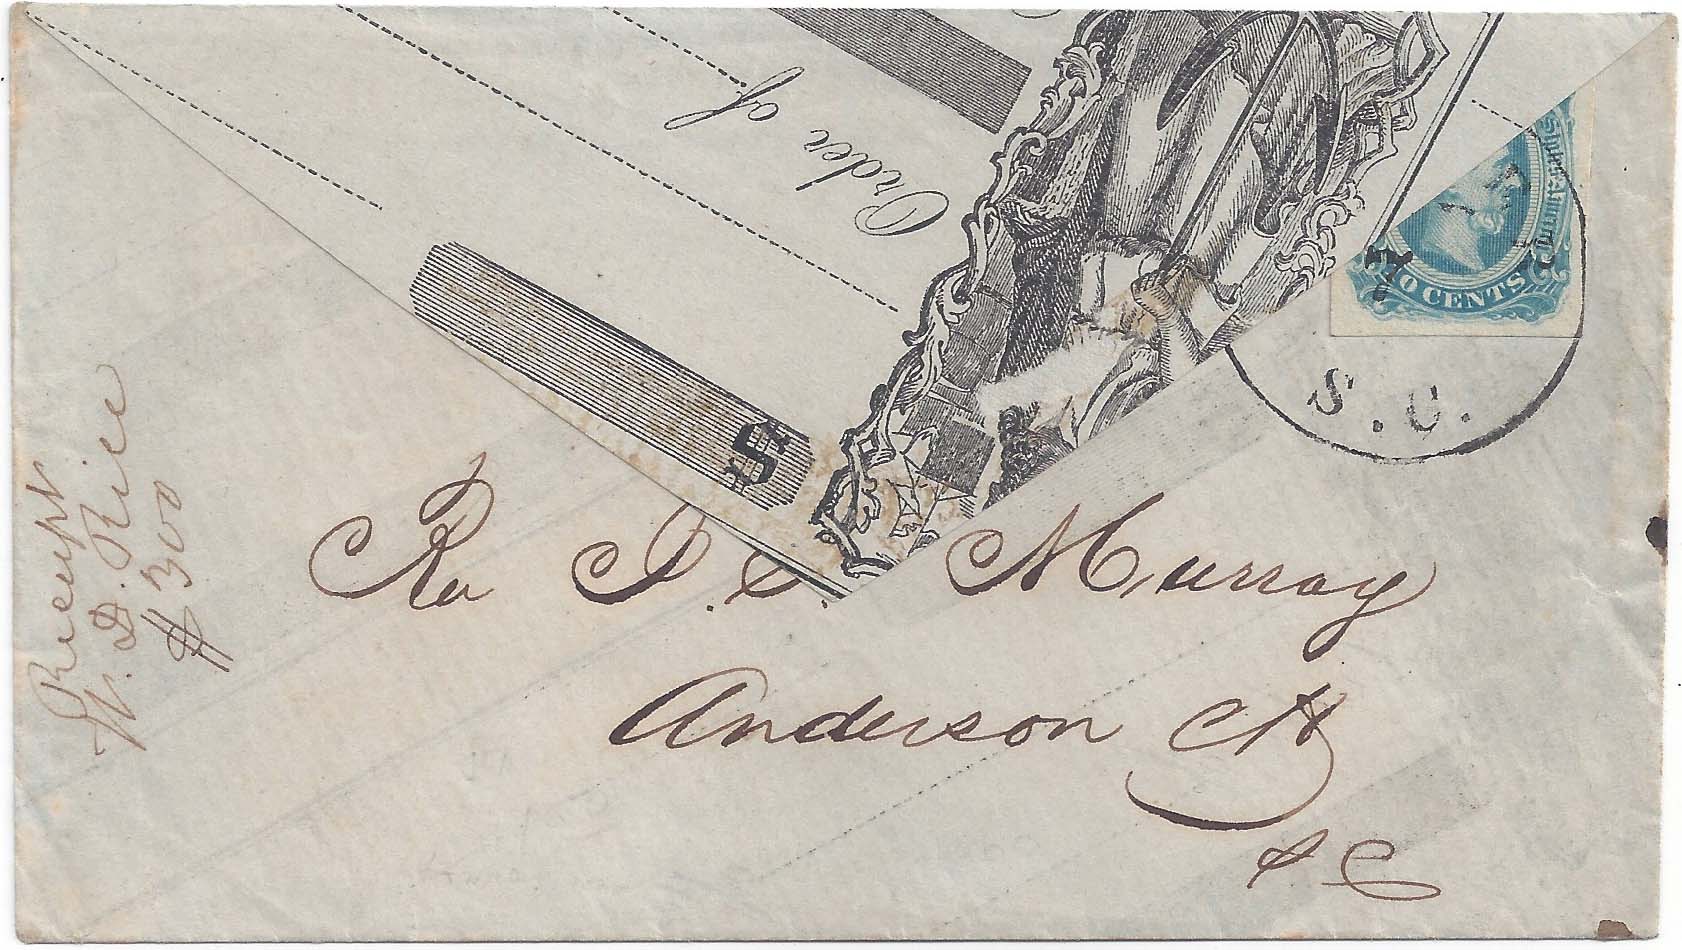 Order of
$
TEN CENTS
S. C.
Receipt
W. D. Rice
$300
Rev J. S. Murray
Anderson CH
S C